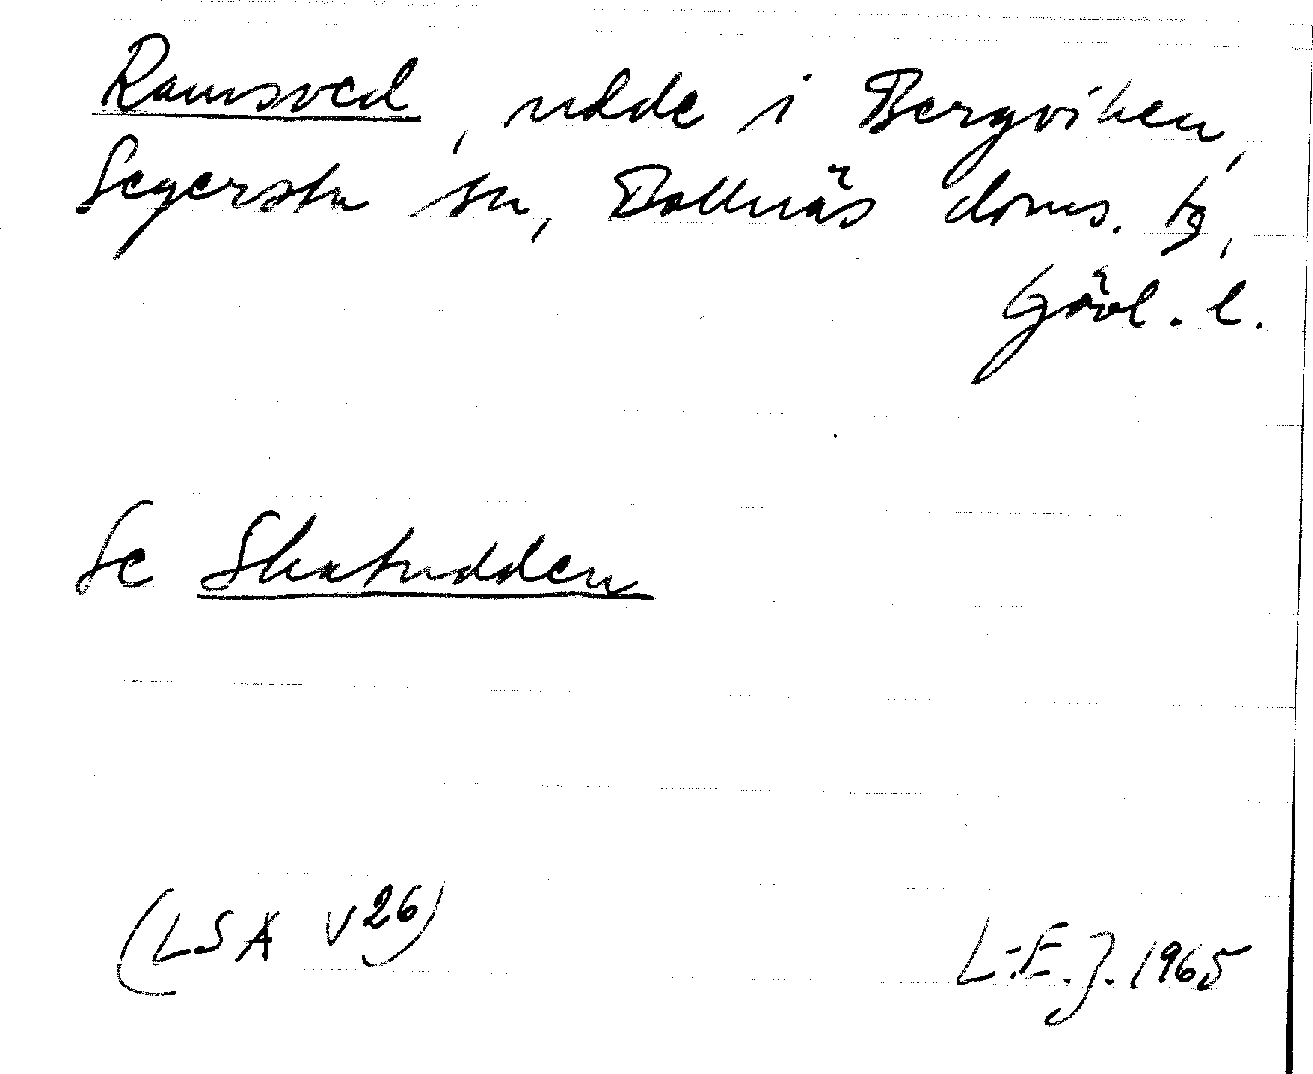 Ramsved, udde i Bergviken,
Segersta sn, Bollnäs doms. tg,
Gävl. l.
Se Skatudden
(LSA V26)
L-E.J. 1965